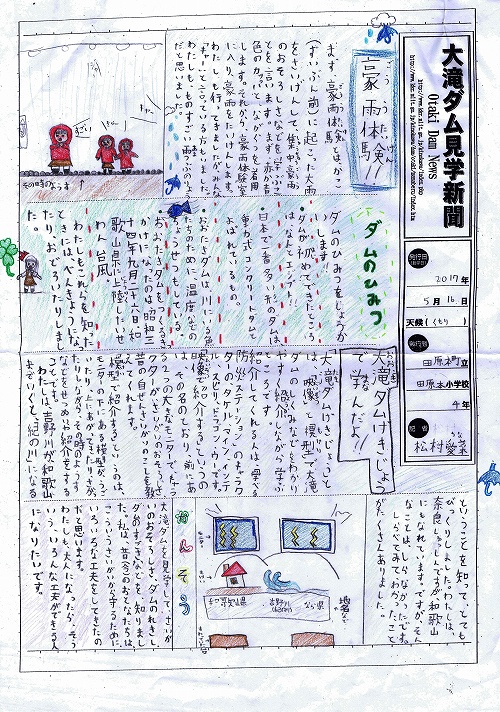 大滝ダム見学新聞
Otaki Dam News
発行日
2017年
5月16日
天候(くもり)
発行所
田原本町立
田原本小学校
4年
記者
松村愛菜
ごううたいけん
豪雨体験!!
まず、豪雨体験とはかこ
(ずいぶん前)に起こった大雨
をさいげんして、集中豪雨
のおそろしさを学ぶこ
とを言います。まず、赤青
色のカッパとながぐつを着用
します。それから、豪雨体験室
に入り、豪雨をたいけんします。
わたしも行ってきましたがみんな
「キャー」と言っている方もしました。
わたしもものすごい雨ぶりよう
だと思いました。
その時のようす
ダムのひみつ
ダムのひみつをしょうか
いします!!
・ダムが初めてできたところ
は、なんとエジプト!!
・日本で一番多い形のダムは、
重力式コンクリートダムと
よばれているもの。
・おおたきダムは川にいる魚
たちのために、温度などの
ちょうせつもしている。
・おおたきダムをつくるき
かけになったのは昭和三
十四年九月二十六日に和
歌山県に上陸したいせ
わん台風。
わたしもこれらを知った
ときには、べんきょうになっ
たり、おどろいたりしまし
た。
大滝ダムげきじょう
で学んだよ!!
大滝ダムげきじょうと
は、映像と模型で大滝
ダムのしくみなどをわかり
やすく紹介しながら、学ぶ
ところです。
紹介してくれるのは、学べる
防災ステーションのキャラク
昔の自ぜんさいがいのことを教
えてくれます。
模型で紹介するというのは、
モニターの下にある模型がうご
いたり、上にあがってきたり、さが
たりしながら、その時のようす
などをせつめい紹介をする
こと。
わたしは、吉野川が和歌山
までいくと、「紀の川」になる
ということを知って、とても
びっくりしました。わたしは、
奈良しゅっしんですが、和歌山
にもなれています。ですが、そん
なことは、しらなかったです。
しらべてみてわかったこと
がたくさんありました。
モニター
和歌山県
吉野川
なら県
地名まで
かんそう
大滝ダムを見学して、さいが
いのおそろしさ、ダムのれきし、
ダムのすごさなどを、知りまし
た。私は、昔今のおとなたちは、
こういうさいがいから守るために、
いろいろな工夫をしてきたの
だと思います。
わたしも大人になったら、そう
いう、いろんな工夫ができる人
になりたいです。